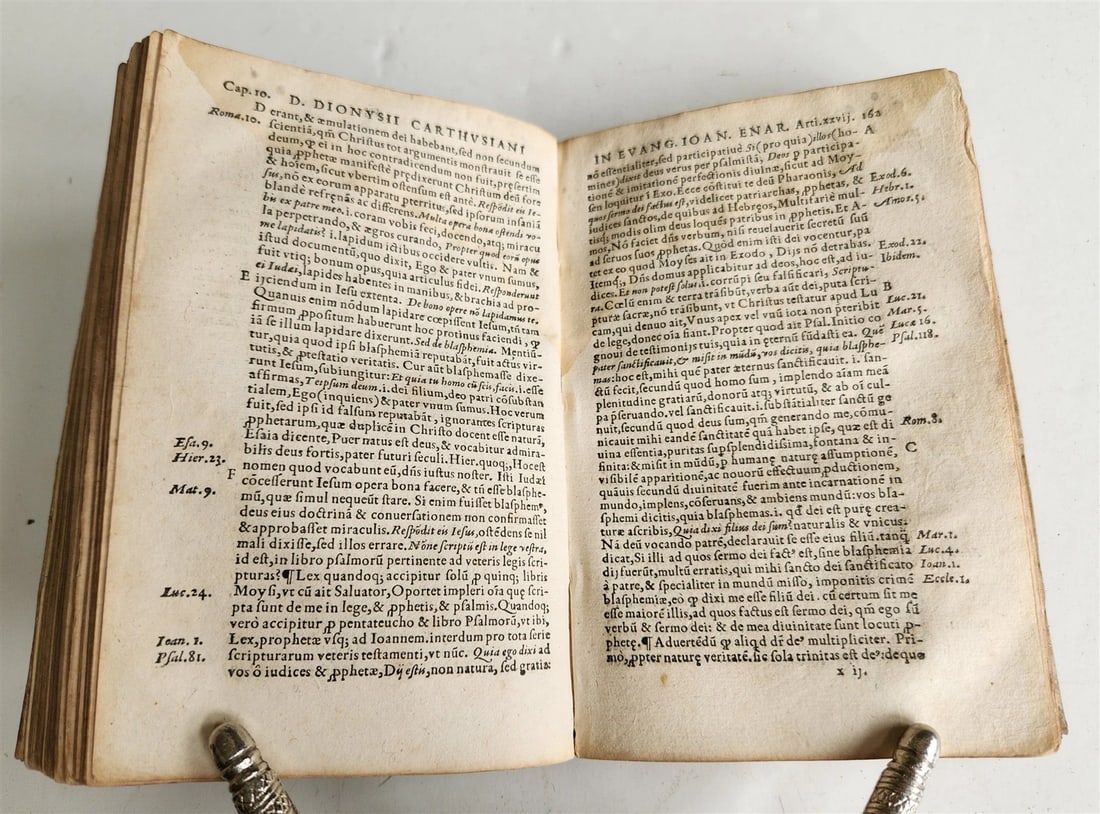 Cap. 10. D. DIONYSII CARTHVSIANI
D erant, & æmulationem dei habebant, sed non secundum
Roma. 10. scientiã, qm̃ Christus tot argumentis monstrauit se esse
deum, ꝙ ei in hoc contradicendum non fuit, præsertim
quia ꝓphetæ manifestè prędixerunt Christum deũ fore
& hoiem, sicut vbertim ostensum est antè. Respõdit eis Ie-
sus, nõ ex eorum apparatu pterritus, sed ipsorum insaniã
blandè refręnãs ac differens. Multa opera bona ostendi vo-
bis ex patre meo. i. coram vobis feci, docendo, atq; miracu
la perpetrando, & ægros curando, Propter quod eorũ opus
me lapidatis? i. lapidum ictibus occidere vultis. Nam &
istud documentũ, quo dixit, Ego & pater vnum sumus,
fuit vtiq; bonum opus, quia articulus fidei. Responderunt
ei Iudæi, lapides habentes in manibus, & brachia ad pro-
E ijciendum in Iesu extenta. De bono opere nõ lapidamus te.
Quanuis enim nõdum lapidare cœpissent Iesum, tñ tam
firmum ꝓpositum habuerunt hoc protinus faciendi, ꝙ
iã se illum lapidare dixerunt. Sed de blasphemia. Mentiũ-
tur, quia quod ipsi blasphemiã reputabãt, fuit actus vir-
tutis, & ꝓtestatio veritatis. Cur aũt blasphemasse dixe-
runt Iesum, subiungitur: Et quia tu homo cũ sis, facis. i. esse
affirmas, Teipsum deum. i. dei filium, deo patri cõsubstan
tialem, Ego (inquiens) & pater vnum sumus. Hoc verum
fuit, sed ipsi id falsum reputabãt, ignorantes scripturas
ꝓphetarum, quæ duplicẽ in Christo docent esse naturã,
Esa. 9. Esaia dicente, Puer natus est deus, & vocabitur admira-
Hier. 23. bilis deus fortis, pater futuri seculi. Hier. quoq;, Hoc est
nomen quod vocabunt eũ, dñs iustus noster. Isti Iudæi
F cõcesserunt Iesum opera bona facere, & tñ esse blasphe-
Mat. 9. mũ, quæ simul nequeũt stare. Si enim fuisset blasphemꝰ,
deus eius doctrinã & conuersationem non confirmasset
& approbasset miraculis. Respõdit eis Iesus, ostẽdens se nil
mali dixisse, sed illos errare. Nõne scriptũ est in lege vestra,
id est, in libro psalmorũ pertinente ad veteris legis scri-
pturas? ¶ Lex quandoq; accipitur solũ ꝓ quinq; libris
Luc. 24. Moysi, vt cũ ait Saluator, Oportet impleri oĩa quę scri-
pta sunt de me in lege, & ꝓphetis, & psalmis. Quandoq;
verò accipitur ꝓ pentateucho & libro Psalmorũ, vt ibi,
Ioan. 1. Lex, prophetæ vsq; ad Ioannem. interdum pro tota serie
Psal. 81. scripturarum veteris testamenti, vt nũc. Quia ego dixi ad
vos ô iudices & ꝓphetæ, Dij estis, non natura, sed gratia:
IN EVANG. IOAN. ENAR. Arti. xxvij. 162
nõ essentialiter, sed participatiuè Si (pro quia) illos (ho- A
mines) dixit deus verus per psalmistã, Deos p participa-
tionẽ & imitationẽ perfectionis diuinæ, sicut ad Moy-
sen loquitur ĩ Exo. Ecce cõstitui te deũ Pharaonis, Ad Exod. 6.
quos sermo dei factus est, videlicet patriarchas, ꝓphetas, & Hebr. 1.
iudices sanctos, de quibus ad Hebręos, Multifariè mul-
tisq; modis olim deus loquẽs patribus in ꝓphetis. Et A- Amos. 5.
mos, Nõ faciet dñs verbum, nisi reuelauerit secretũ suũ
ad seruos suos ꝓphetas. Quòd enim isti dei vocentur, pa
tet ex eo quod Moyses ait in Exodo, Dijs nõ detrabas. Exod. 22.
Itemq;, Dñs domus applicabitur ad deos, hoc est, ad iu- Ibidem.
dices. Et non potest solui. i. corrũpi seu falsificari, Scriptu-
ra. Cœlũ enim & terra trãsibũt, verba aũt dei, puta scri B
pturæ sacræ, nõ trãsibunt, vt Christus testatur apud Lu Luc. 21.
cam, qui denuo ait, Vnus apex vel vnũ iota non pteribit Mar. 5.
de lege, donec oĩa fiant. Propter quod ait Psal. Initio co Luca 16.
gnoui de testimonijs tuis, quia in ęternũ fũdasti ea. Quẽ Psal. 118.
pater sanctificauit, & misit in mũdũ, vos dicitis, quia blasphe-
mas: hoc est, mihi quẽ pater æternus sanctificauit. i. san-
ctũ fecit, secundũ quod homo sum, implendo aĩam meã
plenitudine gratiarũ, donorũ atq; virtutũ, & ab oĩ cul-
pa pseruando. vel sanctificauit. i. substãtialiter sanctũ ge
nuit, secundũ quod deus sum, qm̃ generando me, cõmu-
nicauit mihi eandẽ sanctitatẽ quã habet ipse, quæ est di Rom. 8.
uina essentia, puritas supsplendidissima, fontana & in-
finita: & misit in mũdũ, p humanę naturę assumptionẽ, C
visibilẽ apparitionẽ, ac nouorũ effectuum ꝓductionem,
quãuis secundũ diuinitatẽ fuerim ante incarnationẽ in
mundo, implens, cõseruans, & ambiens mundũ: vos bla-
sphemi dicitis, quia blasphemas. i. qđ dei est purę crea-
turæ ascribis, Quia dixi filius dei sum? naturalis & vnicus.
Nã deũ vocando patrẽ, declarauit se esse eius filiũ. tanq̃ Mar. 1.
dicat, Si illi ad quos sermo dei factꝰ est, sine blasphemia Luc. 4.
dij fuerũt, multũ erratis, qui mihi sancto dei sanctificato Ioan. 1.
à patre, & specialiter in mundũ misso, imponitis crimẽ Eccle. 1.
blasphemiæ, eo ꝙ dixi me esse filiũ dei. cũ certum sit me
esse maiorẽ illis, ad quos factus est sermo dei, qm̃ ego sũ
verbũ & sermo dei: & de mea diuinitate sunt locuti ꝓ-
phetę. ¶ Aduertẽdũ ꝙ aliqđ dr̃ deꝰ multipliciter. Pri-
mò, ꝓpter naturę veritatẽ. sic sola trinitas est deꝰ: de quo
x ij.